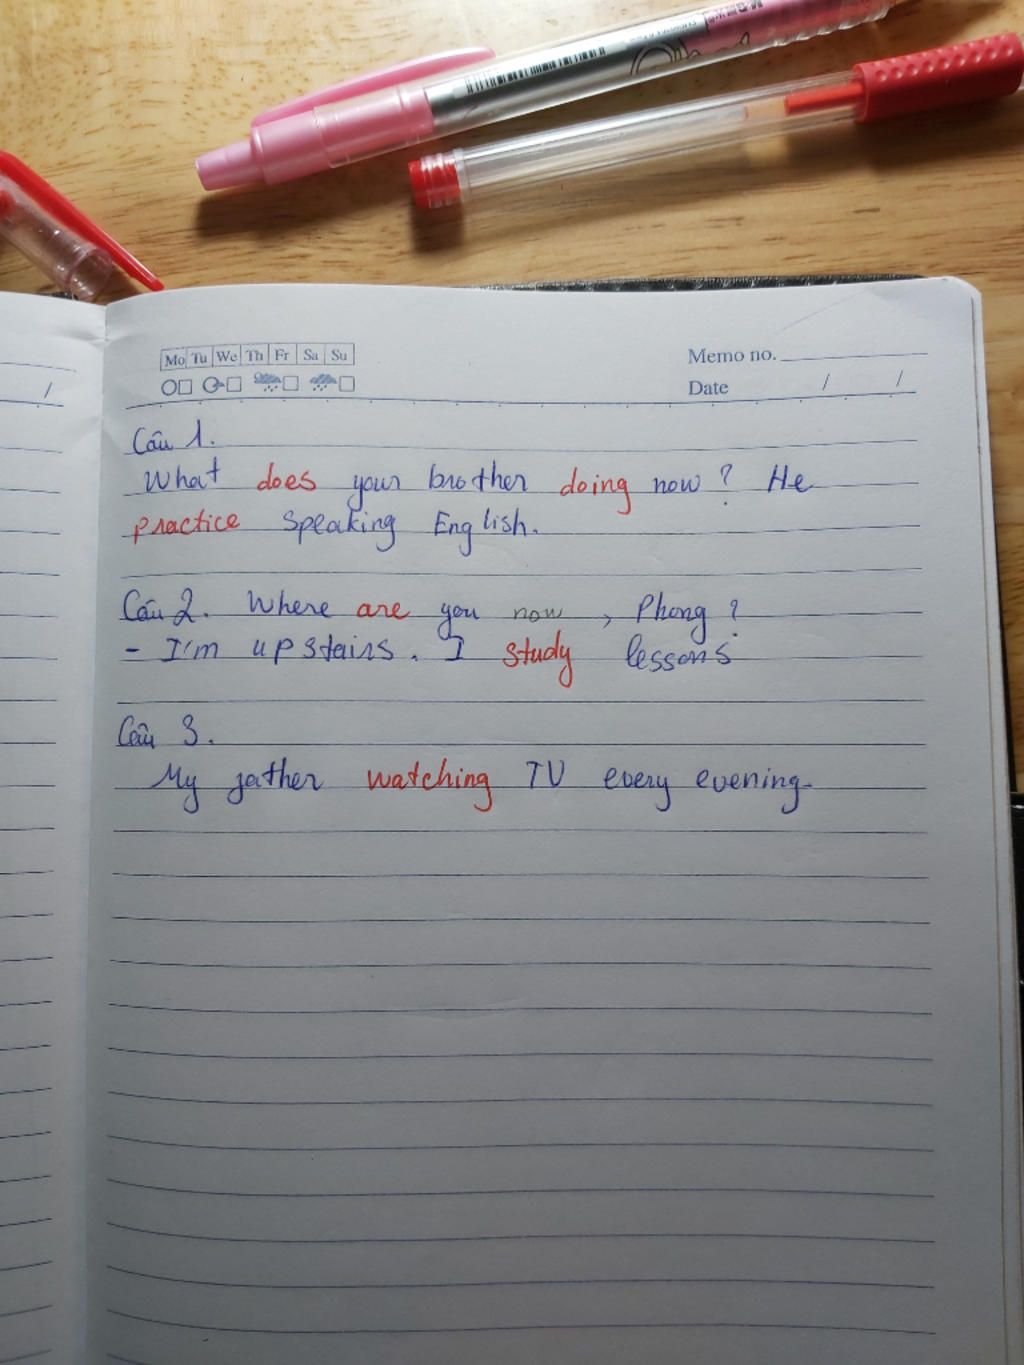 Mo Tu We Th Fr Sa Su
Memo no.
Date / /
/
Câu 1.
What does your brother doing now? He
practice speaking English.
Câu 2. Where are you now, Phong?
- I'm upstairs. I study lessons
Câu 3.
My father watching TV every evening.